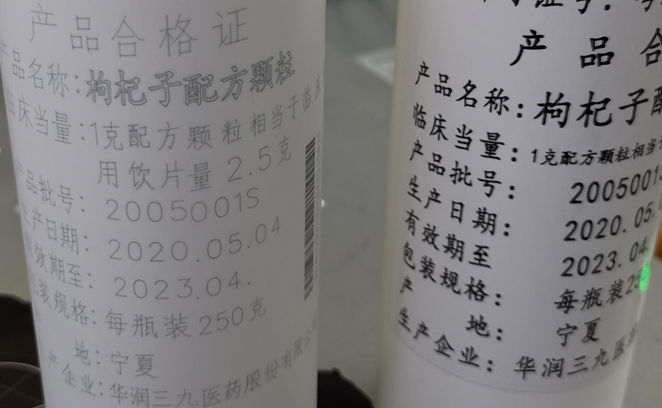 产品合格证
产品名称：枸杞子配方颗粒
临床当量：1克配方颗粒相当于临床
用饮片量 2.5克
产品批号：2005001S
生产日期：2020.05.04
有效期至：2023.04.
包装规格：每瓶装250克
地：宁夏
产企业：华润三九医药股份有限公
产品合
产品名称：枸杞子配
临床当量：1克配方颗粒相当
产品批号：2005001
生产日期：2020.05.
有效期至 2023.04.
包装规格：每瓶装25
产 地：宁夏
生产企业：华润三九医药